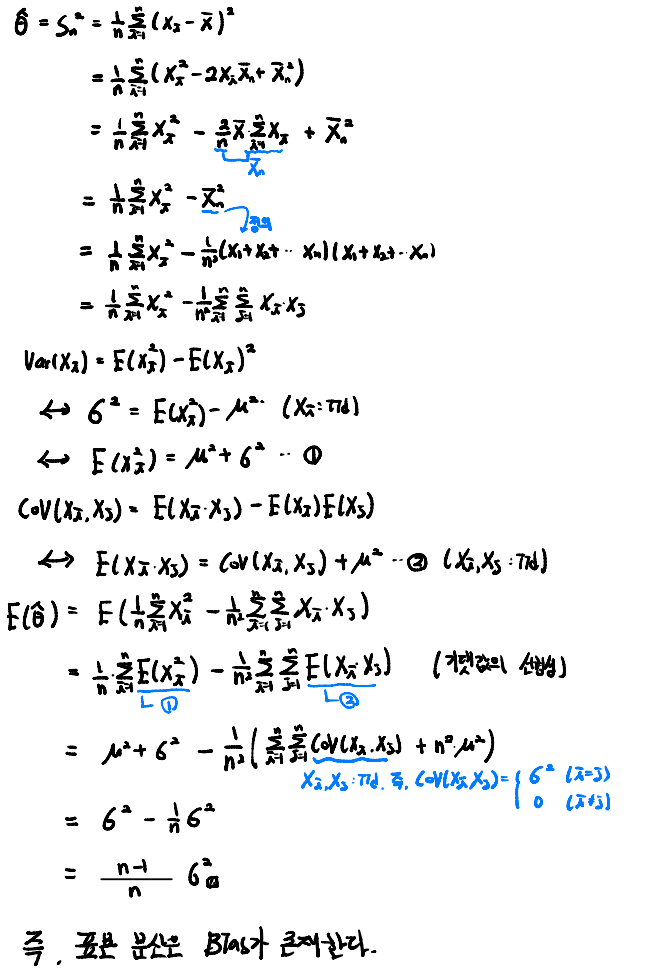 θ̂ = Sₙ² = 1/n Σᵢ₌₁ⁿ (Xᵢ - X̄)²
= 1/n Σᵢ₌₁ⁿ (Xᵢ² - 2XᵢX̄ₙ + X̄ₙ²)
= 1/n Σᵢ₌₁ⁿ Xᵢ² - 2/n X̄ · Σᵢ₌₁ⁿ Xᵢ + X̄ₙ²
X̄ₙ
= 1/n Σᵢ₌₁ⁿ Xᵢ² - X̄ₙ²
정의
= 1/n Σᵢ₌₁ⁿ Xᵢ² - 1/n² (X₁+X₂+ ·· Xₙ)(X₁+X₂+ ·· Xₙ)
= 1/n Σᵢ₌₁ⁿ Xᵢ² - 1/n² Σᵢ₌₁ⁿ Σⱼ₌₁ⁿ Xᵢ·Xⱼ
Var(Xᵢ) = E(Xᵢ²) - E(Xᵢ)²
↔ σ² = E(Xᵢ²) - μ² (Xᵢ : iid)
↔ E(Xᵢ²) = μ² + σ² ·· ①
Cov(Xᵢ, Xⱼ) = E(Xᵢ·Xⱼ) - E(Xᵢ)E(Xⱼ)
↔ E(Xᵢ·Xⱼ) = Cov(Xᵢ, Xⱼ) + μ² ·· ② (Xᵢ, Xⱼ : iid)
E(θ̂) = E(1/n Σᵢ₌₁ⁿ Xᵢ² - 1/n² Σᵢ₌₁ⁿ Σⱼ₌₁ⁿ Xᵢ·Xⱼ)
= 1/n · Σᵢ₌₁ⁿ E(Xᵢ²) - 1/n² Σᵢ₌₁ⁿ Σⱼ₌₁ⁿ E(Xᵢ·Xⱼ) (기댓값의 선형성)
① ②
= μ² + σ² - 1/n² (Σᵢ₌₁ⁿ Σⱼ₌₁ⁿ Cov(Xᵢ, Xⱼ) + n²·μ²)
Xᵢ, Xⱼ : iid, 즉, Cov(Xᵢ, Xⱼ) = { σ² (i=j)
0 (i≠j)
= σ² - 1/n σ²
= n-1/n σ²
즉, 표본 분산은 Bias가 존재한다.